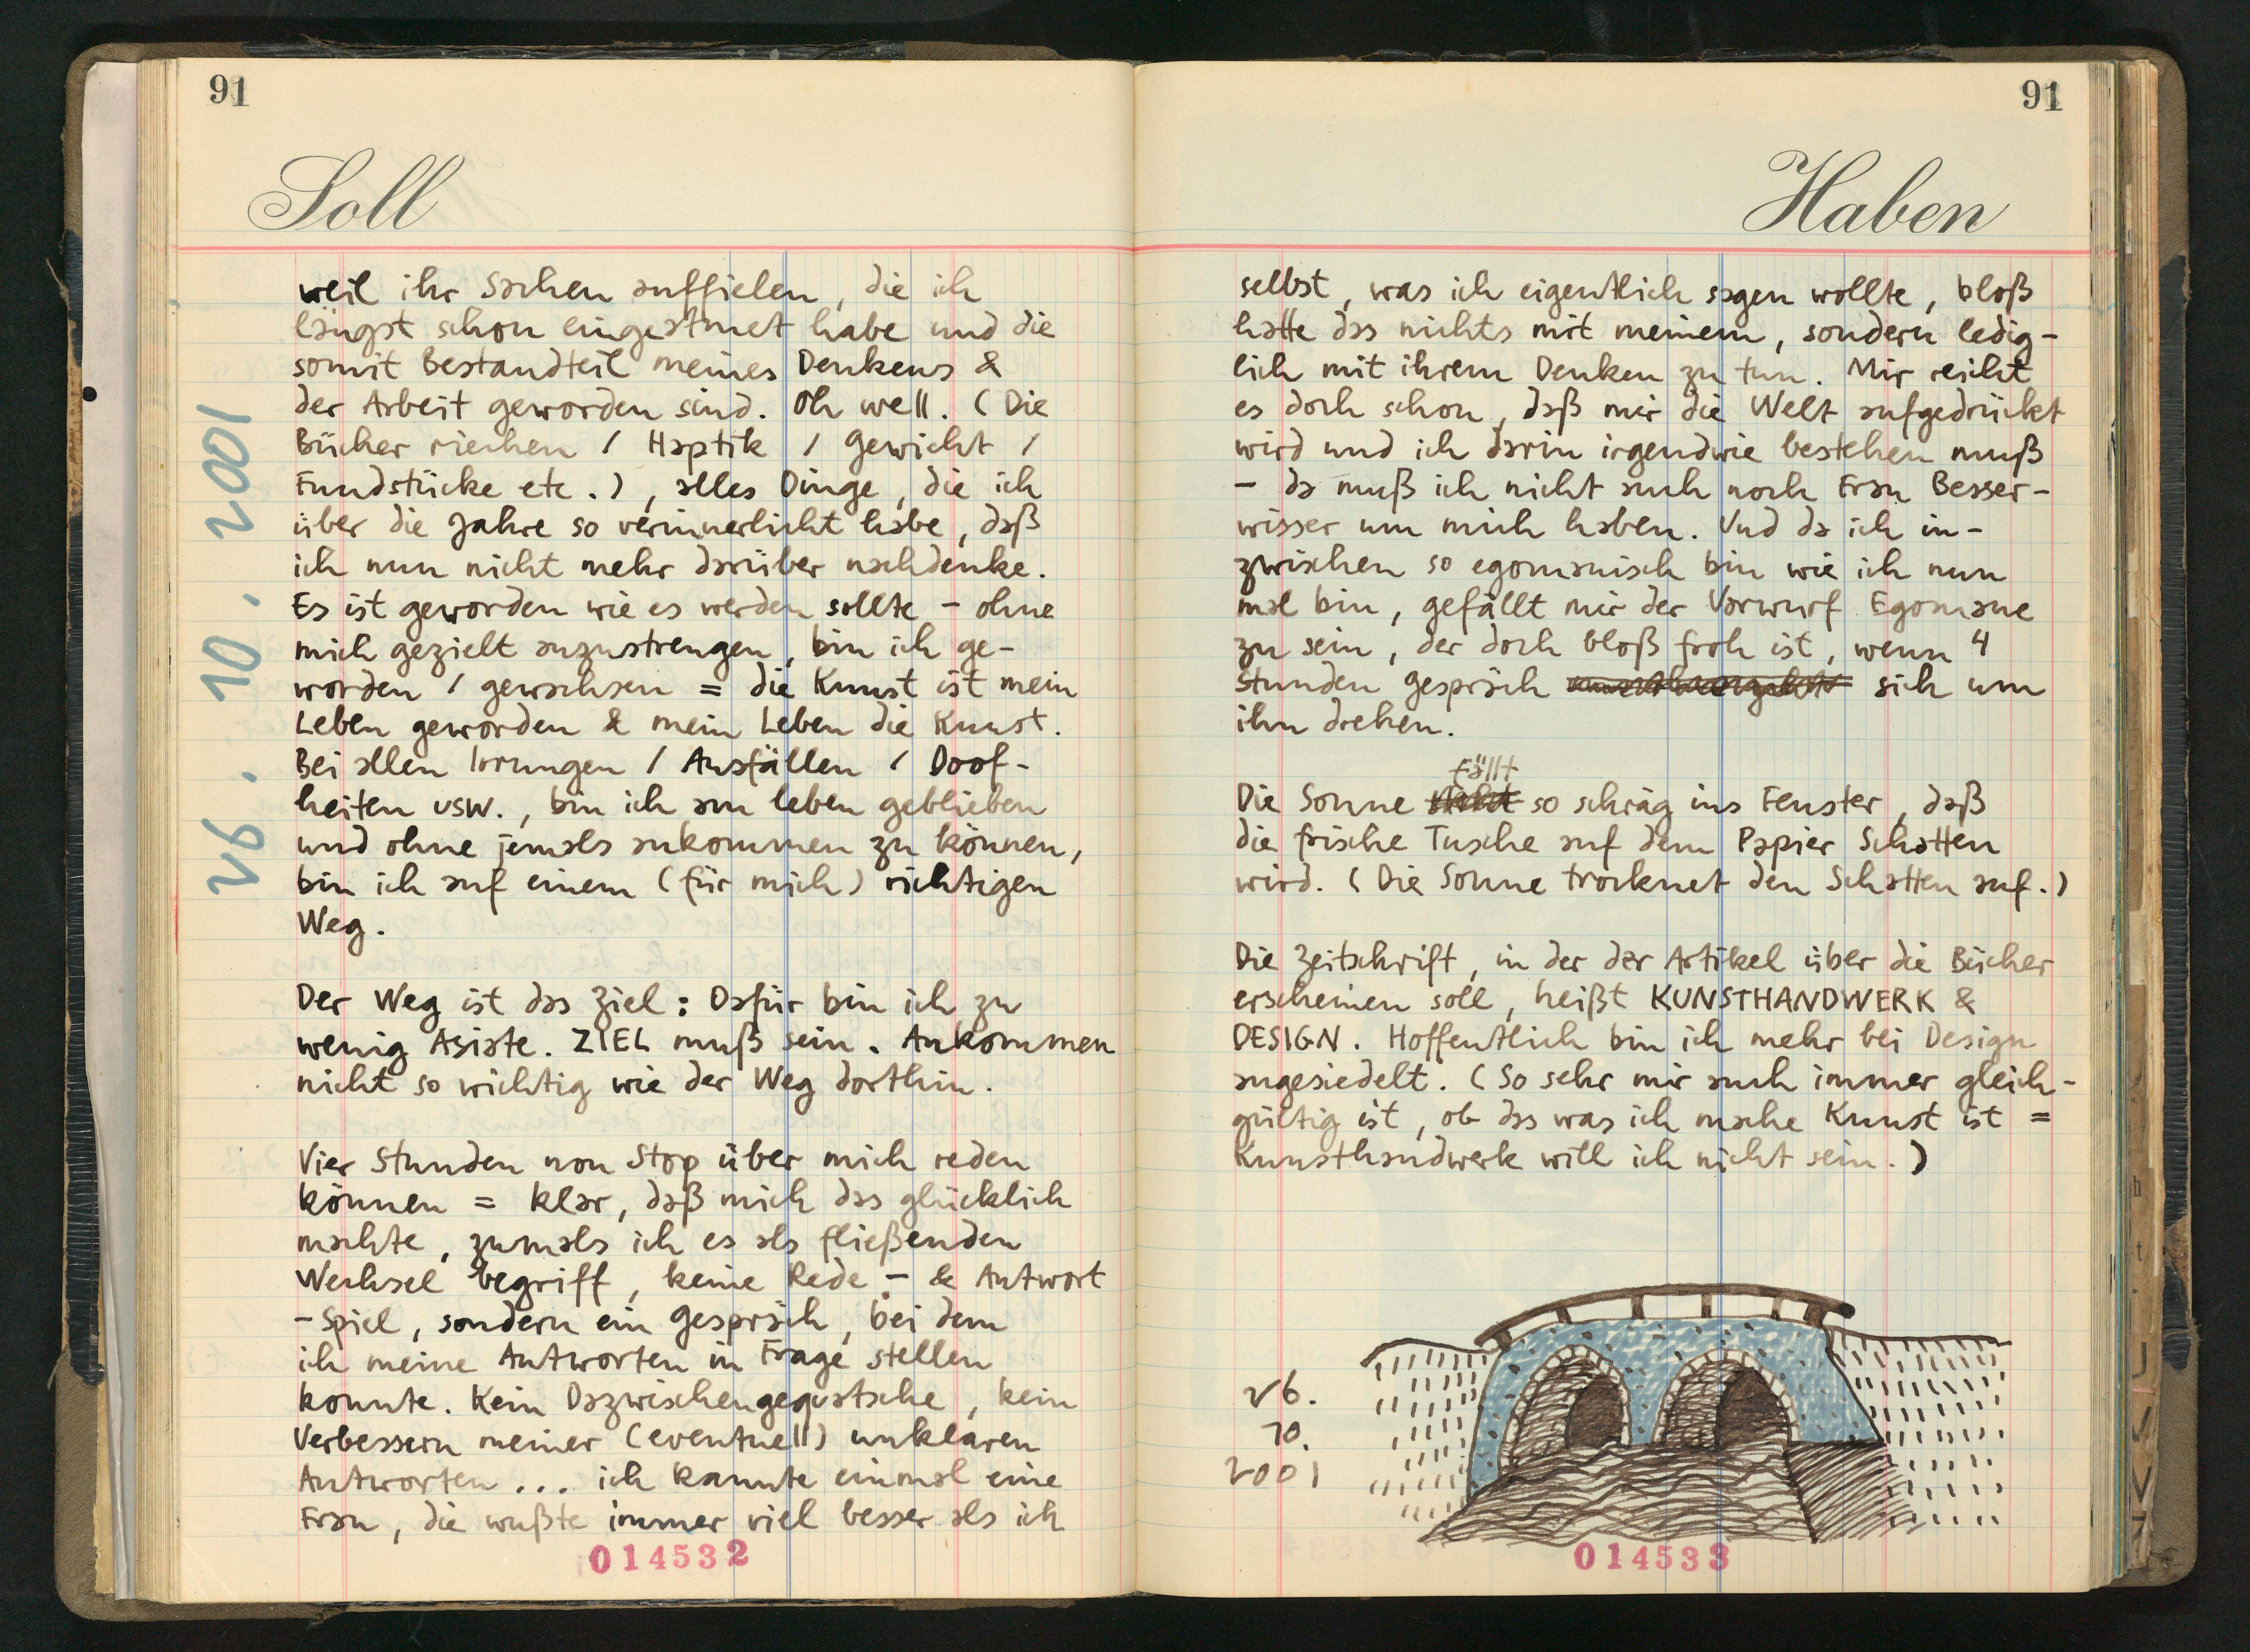 91
Soll
26. 10. 2001
weil ihr Sachen auffielen, die ich
längst schon eingeatmet habe und die
somit Bestandteil meines Denkens &
der Arbeit geworden sind. Oh well. (Die
Bücher riechen / Haptik / Gewicht /
Fundstücke etc.), alles Dinge, die ich
über die Jahre so verinnerlicht habe, daß
ich nun nicht mehr darüber nachdenke.
Es ist geworden wie es werden sollte - ohne
mich gezielt anzustrengen, bin ich ge-
worden / gewachsen = die Kunst ist mein
Leben geworden & mein Leben die Kunst.
Bei allen Irrungen / Ausfällen / Doof-
heiten usw., bin ich am leben geblieben
und ohne jemals ankommen zu können,
bin ich auf einem (für mich) richtigen
Weg.
Der Weg ist das Ziel: Dafür bin ich zu
wenig Asiate. ZIEL muß sein. Ankommen
nicht so wichtig wie der Weg dorthin.
Vier Stunden non Stop über mich reden
können = klar, daß mich das glücklich
machte, zumals ich es als fließenden
Wechsel begriff, keine Rede - & Antwort
- Spiel, sondern ein Gespräch, bei dem
ich meine Antworten in Frage stellen
konnte. Kein Dazwischengequatsche, kein
Verbessern meiner (eventuell) unklaren
Antworten ... ich kannte einmal eine
Frau, die wußte immer viel besser als ich
014532
91
Haben
selbst, was ich eigentlich sagen wollte, bloß
hatte das nichts mit meinem, sondern ledig-
lich mit ihrem Denken zu tun. Mir reicht
es doch schon, daß mir die Welt aufgedrückt
wird und ich darin irgendwie bestehen muß
- da muß ich nicht auch noch Frau Besser-
wisser um mich haben. Und da ich in-
zwischen so egomanisch bin wie ich nun
mal bin, gefällt mir der Vorwurf Egomane
zu sein, der doch bloß froh ist, wenn 4
Stunden Gespräch sich um
ihn drehen.
fällt
Die Sonne so schräg ins Fenster, daß
die frische Tusche auf dem Papier Schatten
wird. (Die Sonne trocknet den Schatten auf.)
Die Zeitschrift, in der der Artikel über die Bücher
erscheinen soll, heißt KUNSTHANDWERK &
DESIGN. Hoffentlich bin ich mehr bei Design
angesiedelt. (So sehr mir auch immer gleich-
gültig ist, ob das was ich mache Kunst ist =
Kunsthandwerk will ich nicht sein.)
26.
10.
2001
014533